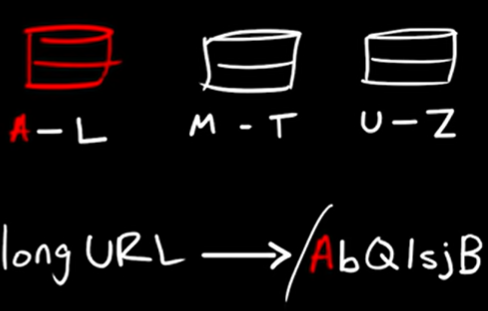 A-L M-T U-Z
long URL → /AbQlsjB